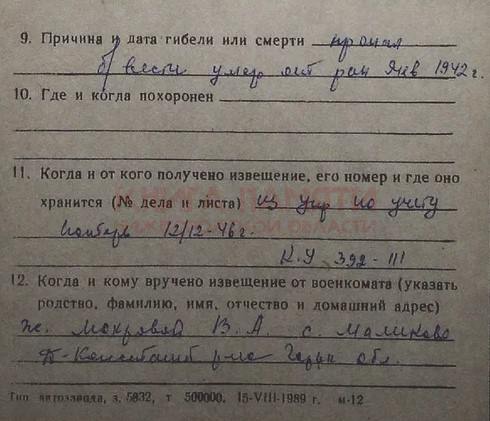 9. Причина и дата гибели или смерти пропал
б/вести умер от ран Янв 1942 г.
10. Где и когда похоронен
11. Когда и от кого получено извещение, его номер и где оно
хранится (№ дела и листа) из упр по учету
12/12-46 г.
К.У 392-III
12. Когда и кому вручено извещение от военкомата (указать
родство, фамилию, имя, отчество и домашний адрес)
ж. Мокровой В. А. с. Маликово
р-на обл.
КНИГА ПАМЯТИ
НИЖЕГОРОДСКОЙ ОБЛАСТИ
Тип автозавода, з. 5832, т 500000. 15-VIII-1989 г. м-12